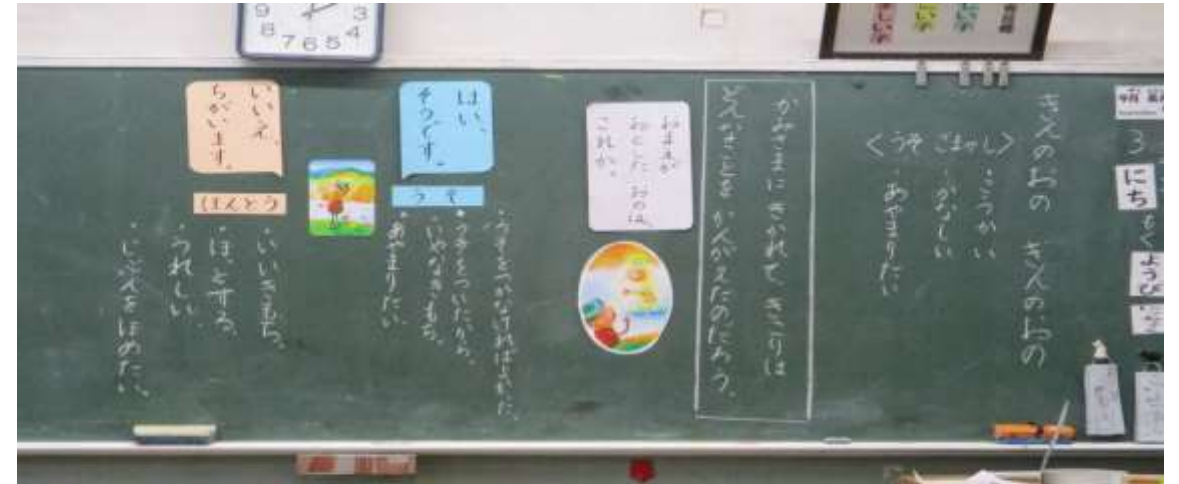 きんのおの ぎんのおの
<うそ ごまかし>
・こうかい
・かなしい
・あやまりたい
かみさまに きかれて、きこりは
どんなことを かんがえたのだろう。
おまえが
おとした おのは、
これか。
はい、
そうです。
うそ
・うそをつかなければよかった。
・うそをついたから、
いやなきもち。
・あやまりたい
いいえ、
ちがいます。
ほんとう
・いいきもち。
・ほっとする。
・うれしい
・じぶんをほめたい。
3
にち
もく
ようび
9
8
7
6
5
4
3